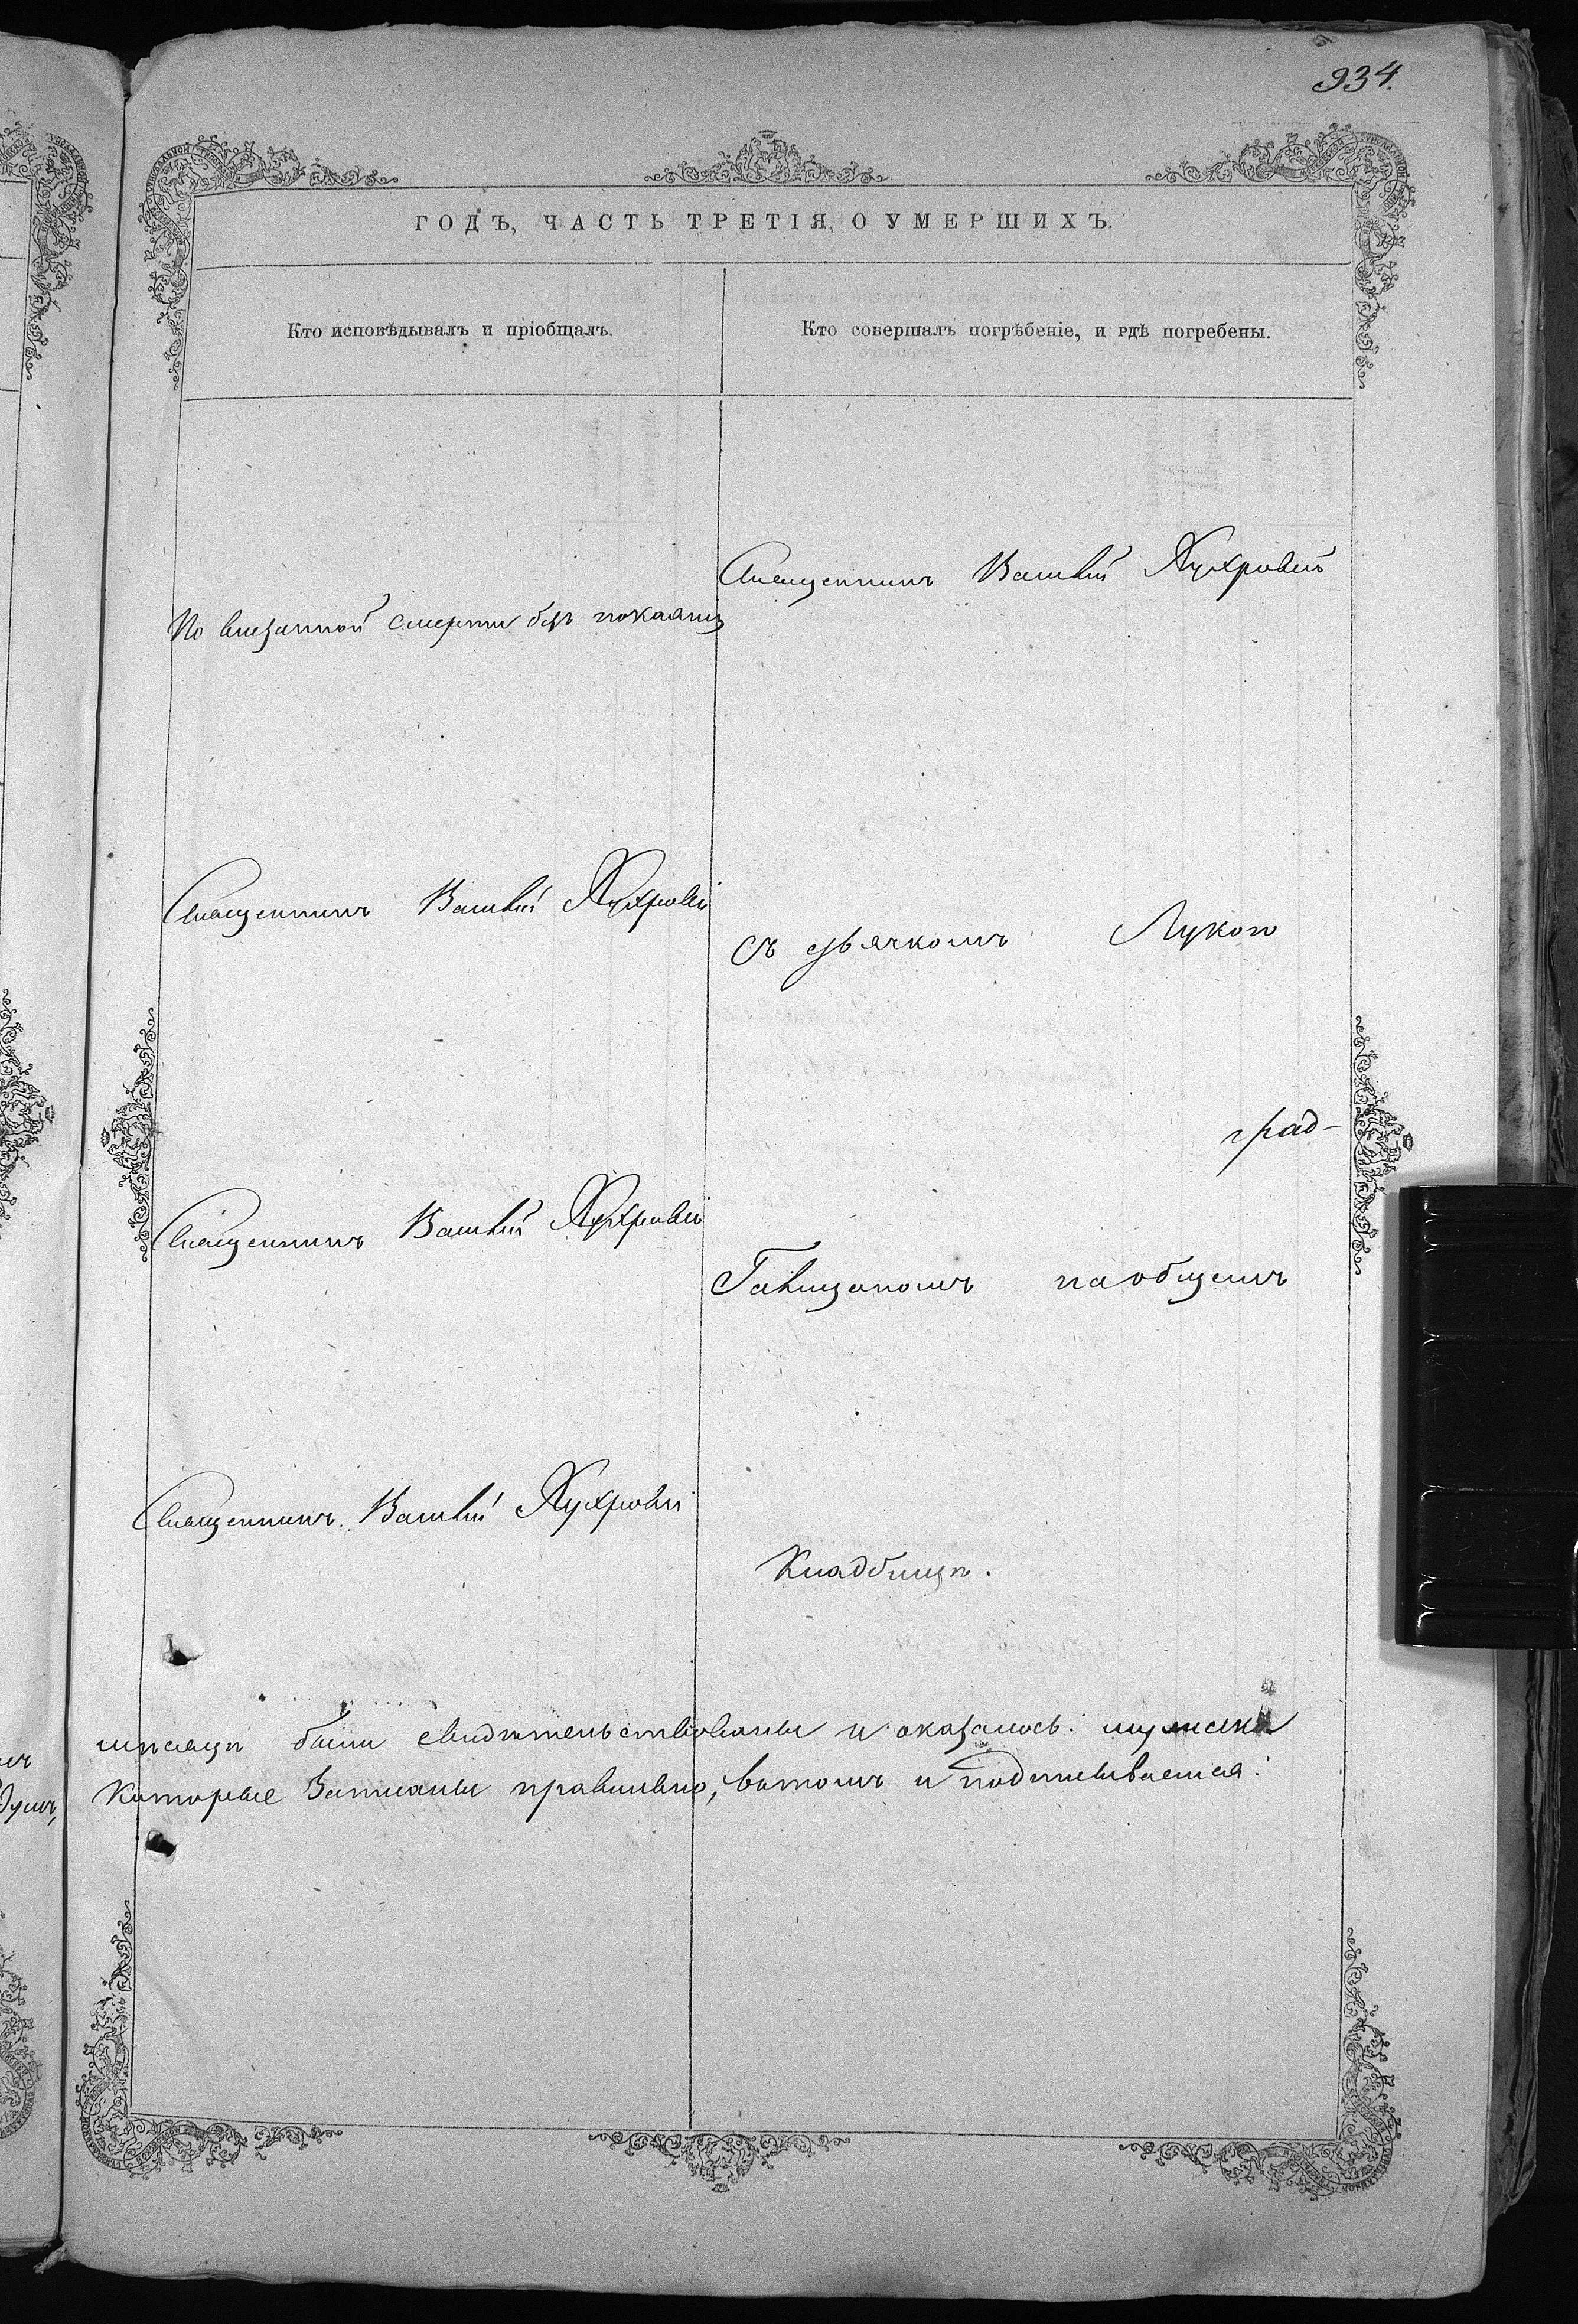 934.
ГОДЪ, ЧАСТЬ ТРЕТІЯ, О УМЕРШИХЪ.
Кто исповѣдывалъ и пріобщалъ.
Кто совершалъ погрѣбеніе, и гдѣ погребены.
По внезапной смерти безъ покаянія
Священникъ Василій Кухровій
Священникъ Василій
съ дьячкомъ Лукою
град-
Священникъ Василій
на общемъ
Священникъ Василій
Кладбищѣ.
мѣсяцѣ были свидѣтельствованы и оказалось: мужеска
Которые Записаны правильно, въ томъ и подписываемся: